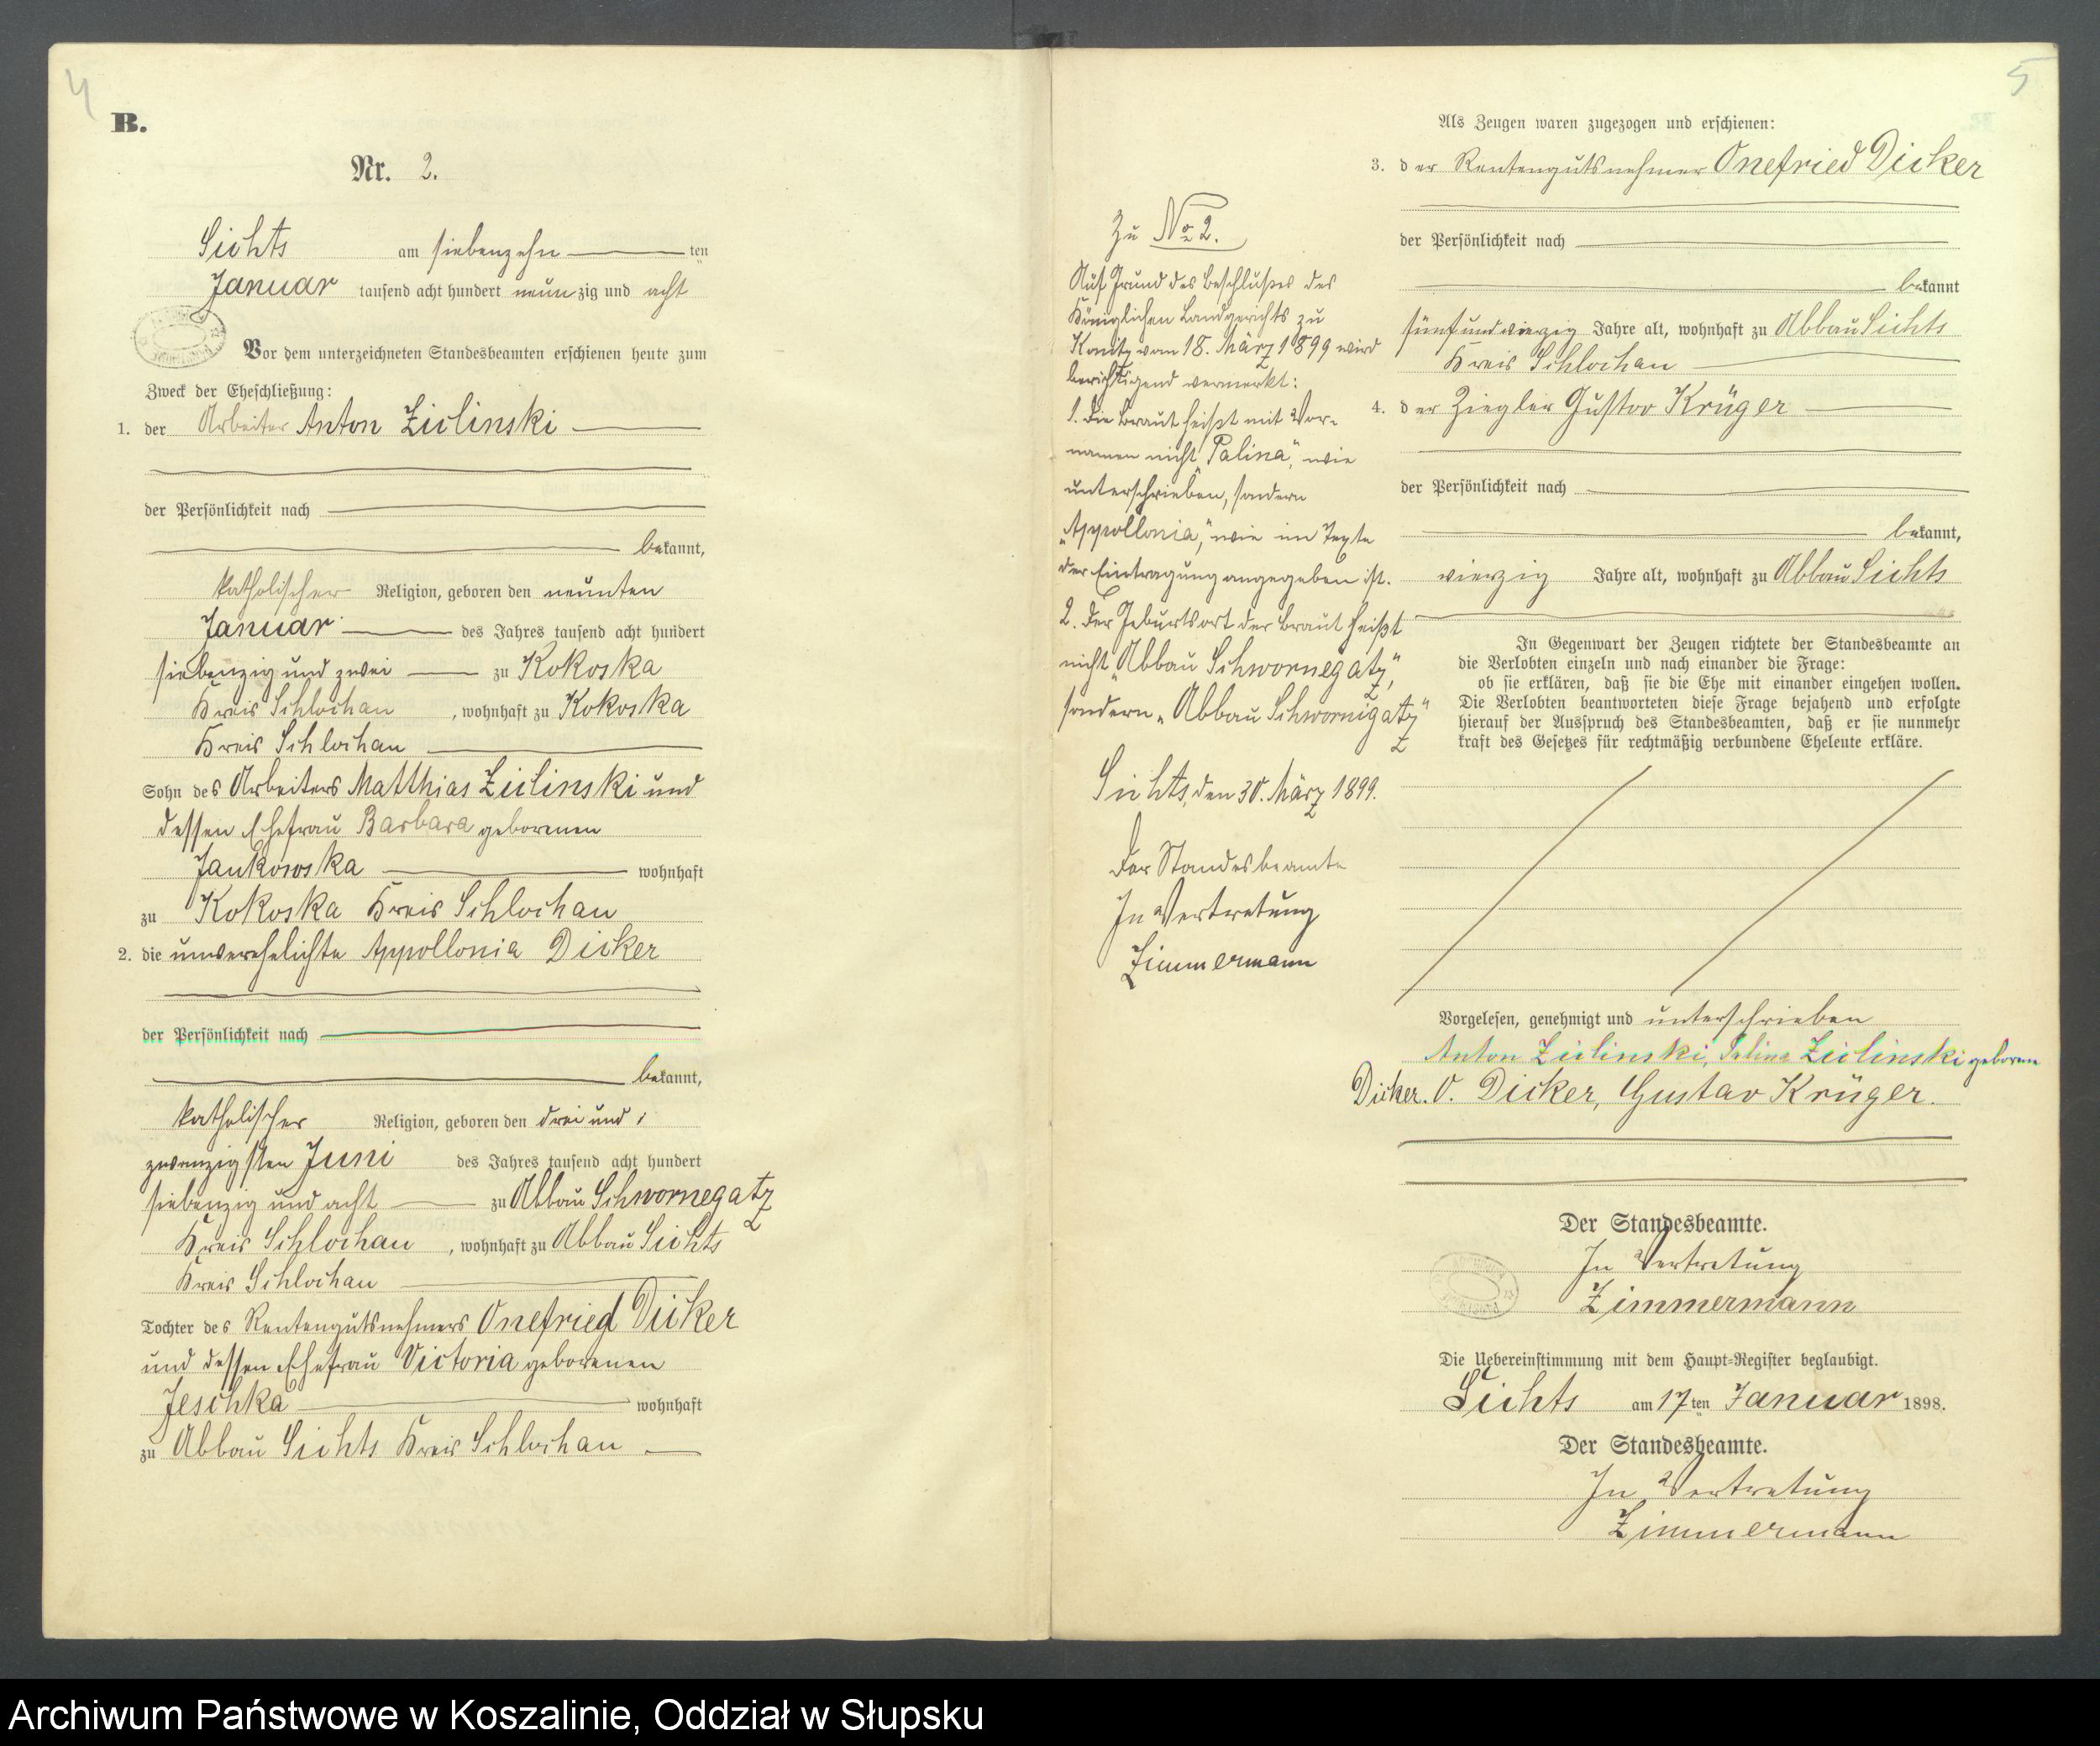 4
B.
Nr. 2.
Sichts am siebenzehn ten
Januar tausend acht hundert neunzig und acht
Vor dem unterzeichneten Standesbeamten erschienen heute zum
Zweck der Eheschließung:
1. der Arbeiter Anton Zielinski
der Persönlichkeit nach
bekannt,
katholischer Religion, geboren den neunten
Januar des Jahres tausend acht hundert
siebenzig und zwei zu Kokoska
Kreis Schlochau, wohnhaft zu Kokoska
Kreis Schlochau
Sohn des Arbeiters Matthias Zielinski und
dessen Ehefrau Barbara geborenen
Jankowska wohnhaft
zu Kokoska Kreis Schlochau
2. die unverehelichte Appollonia Dicker
der Persönlichkeit nach
bekannt,
katholischer Religion, geboren den drei und
zwanzigsten Juni des Jahres tausend acht hundert
siebenzig und acht zu Abbau Schwornegatz
Kreis Schlochau, wohnhaft zu Abbau Sichts
Kreis Schlochau
Tochter des Rentengutsnehmers Onefried Dicker
und dessen Ehefrau Victoria geborenen
Jeschka wohnhaft
zu Abbau Sichts Kreis Schlochau
5
Zu No 2.
Auf Grund des Beschlußes des
Königlichen Landgerichts zu
Konitz vom 18. März 1899 wird
berichtigend vermerkt:
1. Die Braut heißt mit Vor-
namen nicht „Palina", wie
unterschrieben, sondern
„Appollonia", wie im Texte
der Eintragung angegeben ist.
2. Der Geburtsort der Braut heißt
nicht „Abbau Schwornegatz",
sondern „Abbau Schwornigatz"
Sichts, den 30. März 1899.
Der Standesbeamte
In Vertretung
Zimmermann
Als Zeugen waren zugezogen und erschienen:
3. der Rentengutsnehmer Onefried Dicker
der Persönlichkeit nach
bekannt
fünfundvierzig Jahre alt, wohnhaft zu Abbau Sichts
Kreis Schlochau
4. der Ziegler Gustav Krüger
der Persönlichkeit nach
bekannt,
vierzig Jahre alt, wohnhaft zu Abbau Sichts
In Gegenwart der Zeugen richtete der Standesbeamte an
die Verlobten einzeln und nach einander die Frage:
ob sie erklären, daß sie die Ehe mit einander eingehen wollen.
Die Verlobten beantworteten diese Frage bejahend und erfolgte
hierauf der Ausspruch des Standesbeamten, daß er sie nunmehr
kraft des Gesetzes für rechtmäßig verbundene Eheleute erkläre.
Vorgelesen, genehmigt und unterschrieben
Anton Zielinski, Palina Zielinski geborene
Dicker. O. Dicker, Gustav Krüger.
Der Standesbeamte.
In Vertretung
Zimmermann
Die Uebereinstimmung mit dem Haupt-Register beglaubigt.
Sichts am 17ten Januar 1898.
Der Standesbeamte.
In Vertretung
Zimmermann
Archiwum Państwowe w Koszalinie, Oddział w Słupsku